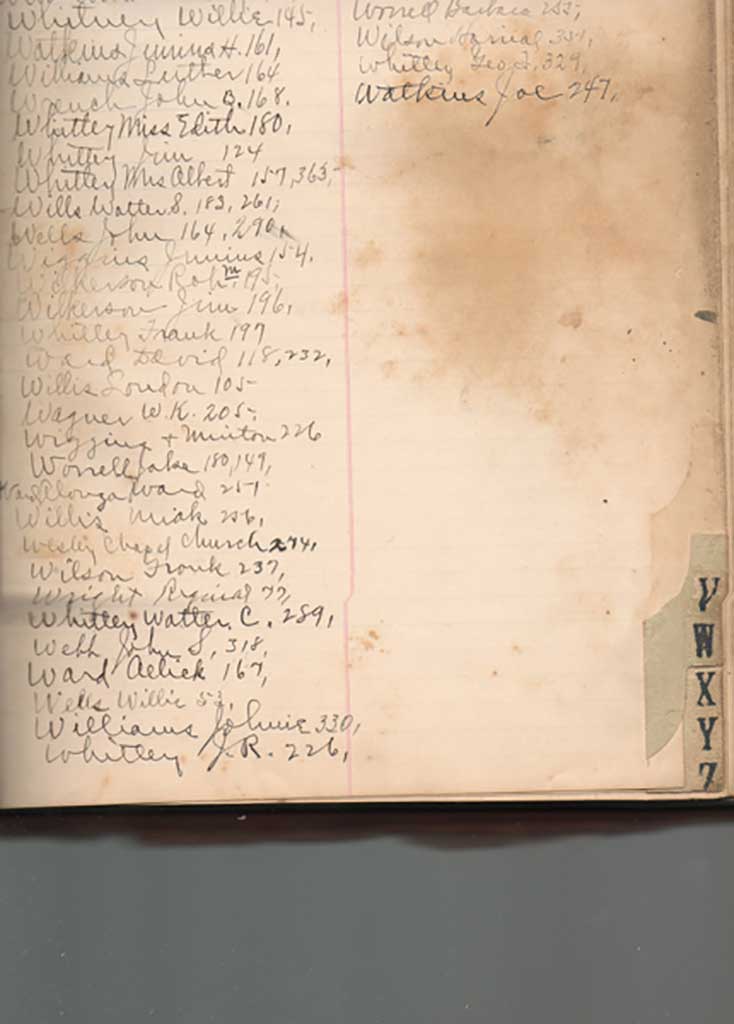 Whitney Willie 145,
Watkins Junius H. 161,
Williams Luther 164
Wrench John B. 168.
Whitley Miss Edith 180,
Whitley Jim 124
Whitley Mrs Albert 157, 363,
Wills Walter S. 183, 261,
Wells John 164, 290,
Wiggins Junius 154.
Wilkerson Robt 195,
Wilkerson Jim 196,
Whitley Frank 197
Ward David 118, 232,
Willis London 105
Wagner W.K. 205,
Wiggins + Minton 226
Worrell Jake 180, 149,
Ward Alonza Ward 251
Willis 256,
Wesley Chapel Church 274,
Wilson Frank 237,
Wright 77,
Whitley Walter C. 289,
Webb John S. 318,
Ward Aelick 167,
Wells Willie 53,
Williams Johnie 330,
Whitley J.R. 226,
Worrell Barbara
Wilson
Whitley Geo. 329,
Watkins Joe 247,
V
W
X
Y
Z